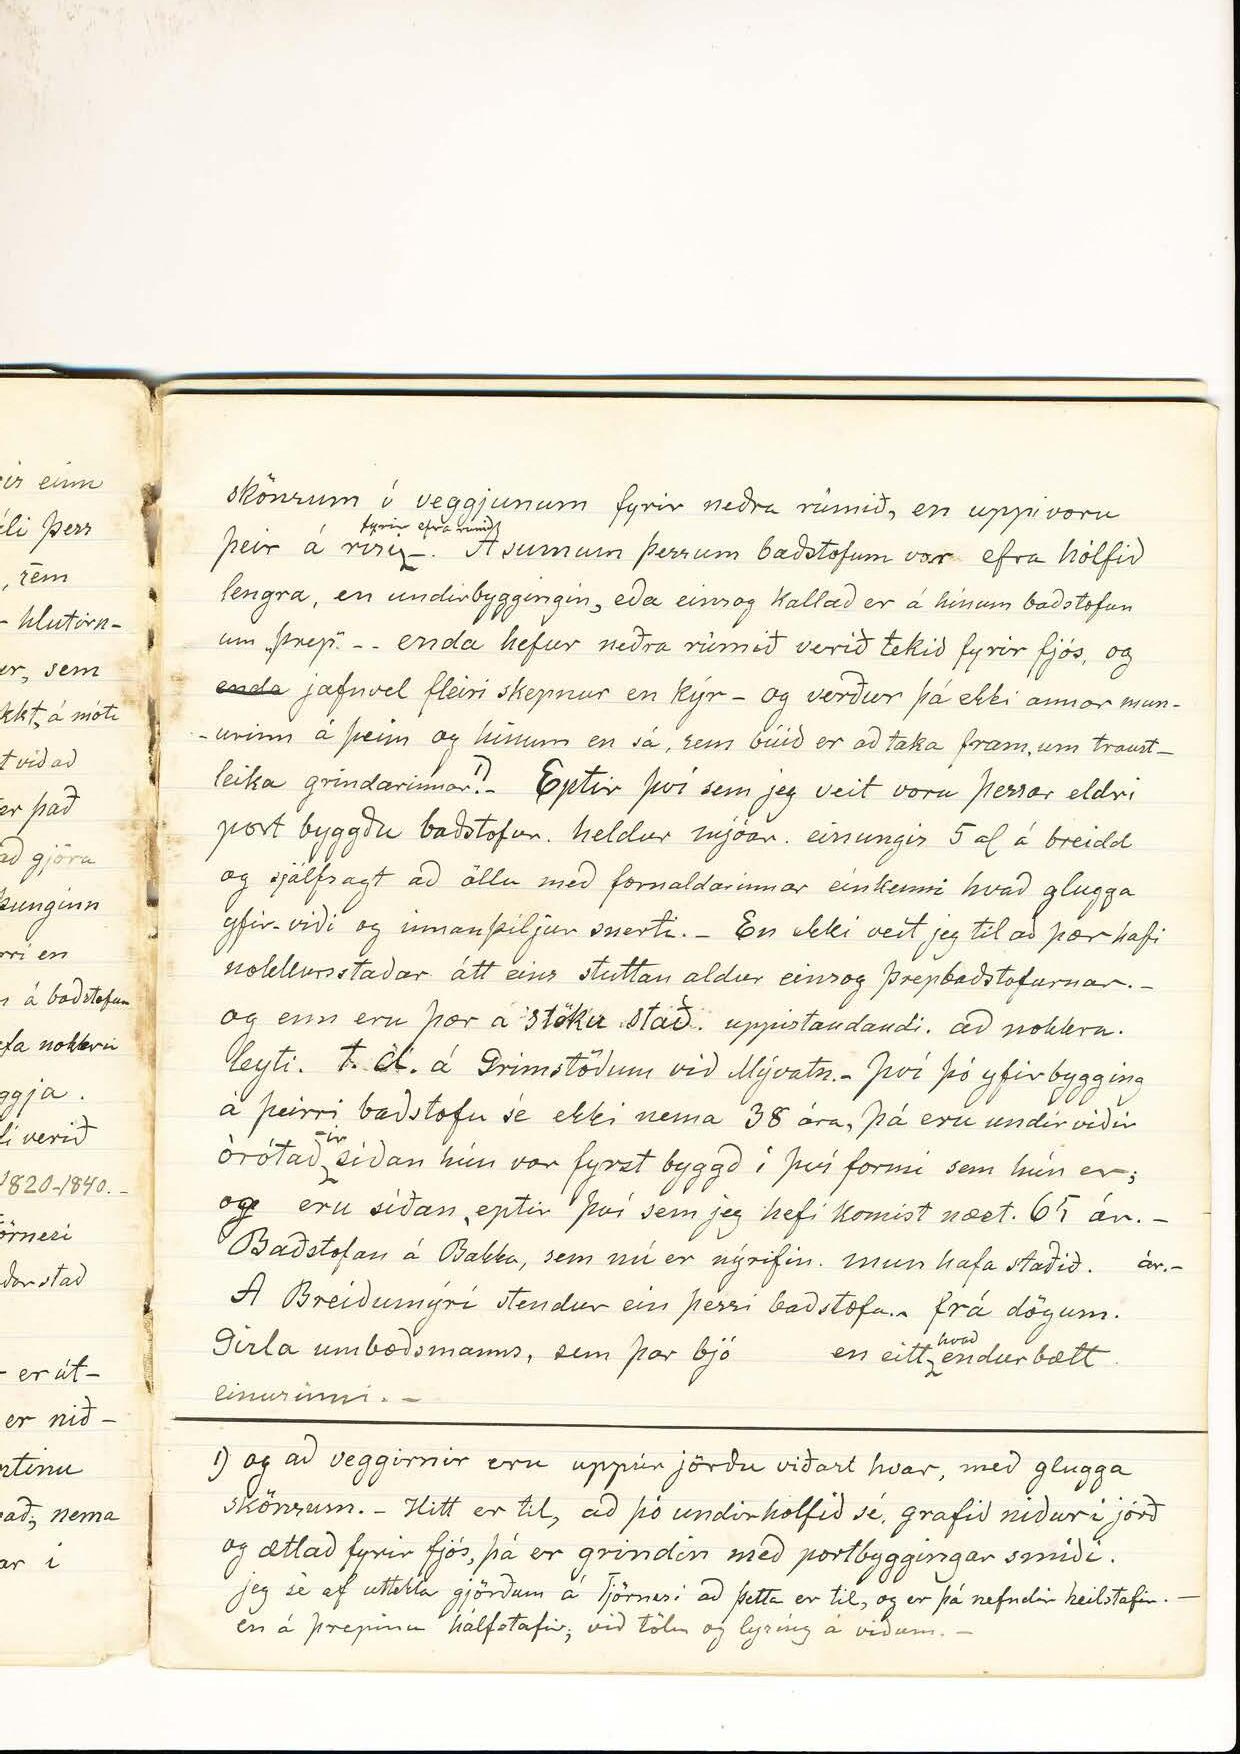 skönsum í veggjunum fyrir neðra rúmið, en uppi voru
fyrir efra rúmið
þeir á risi -. Á sumum þessum baðstofum var efra hólfið
lengra, en undirbyggingin, eða einsog kallað er á hinum baðstofun
um „þrep". -- enda hefur neðra rúmið verið tekið fyrir fjós, og
enda jafnvel fleiri skepnur en kýr - og verður þá ekki annar mun-
-urinn á þeim og hinum en sá, sem búið er að taka fram, um traust-
leika grindarinnar.1) - Eptir því sem jeg veit voru þessar eldri
port byggðu baðstofur. heldur mjóar. einungis 5 al á breidd
og sjálfsagt að öllu með fornaldarinnar einkenni hvað glugga
yfir-viði og innanþiljur snerti. - En ekki veit jeg til að þær hafi
nokkurstaðar átt eins stuttan aldur einsog þrepbaðstofurnar. -
og enn eru þær á stöku stað. uppistandandi. að nokkru.
leyti. t. d. á Grimstöðum við Mývatn. - því þó yfirbygging
á þeirri baðstofu sé ekki nema 38 ára, þá eru undirviðir
-ir
órótað síðan hún var fyrst byggð í því formi sem hún er;
og eru síðan, eptir því sem jeg hefi komist næst. 65 ár. -
Baðstofan á Bakka, sem nú er nýrifin. mun hafa staðið. ár. -
Á Breiðumýri stendur ein þessi baðstofa. - frá dögum.
hvað
Gísla umboðsmanns, sem þar bjó en eitt endurbætt.
einusinni. -
1) og að veggirnir eru uppúr jörðu viðast hvar, með glugga
skönsum. - Hitt er til, að þó undirhólfið sé, grafið niður í jörð
og ætlað fyrir fjós, þá er grindin með portbyggingar smíði.
jeg sé af úttekta gjörðum á Tjörnesi að þetta er til, og er þá nefndir heilstafir. -
en á þrepinu hálfstafir; við tölu og lysing á viðum. -